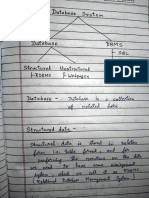 Database System
Database DBMS
SQL
Structured Unstructured
RDBMS Webpages
Database - Database is a collection
of related data.
Structured data -
Structured data is stored in relation
form i.e. table format, and for
performing the operations on the data
we need to have some management
system, which we call it as RDBMS
Relational Database Management System